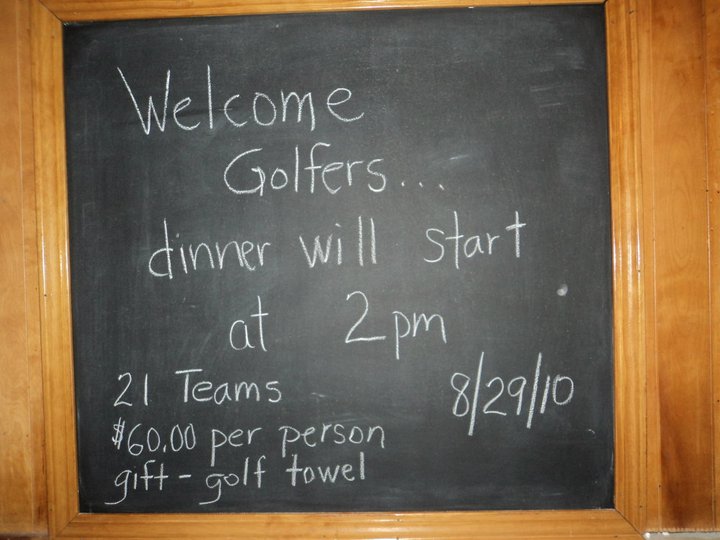 Welcome
Golfers...
dinner will start
at 2pm
21 Teams
8/29/10
$60.00 per person
gift - golf towel